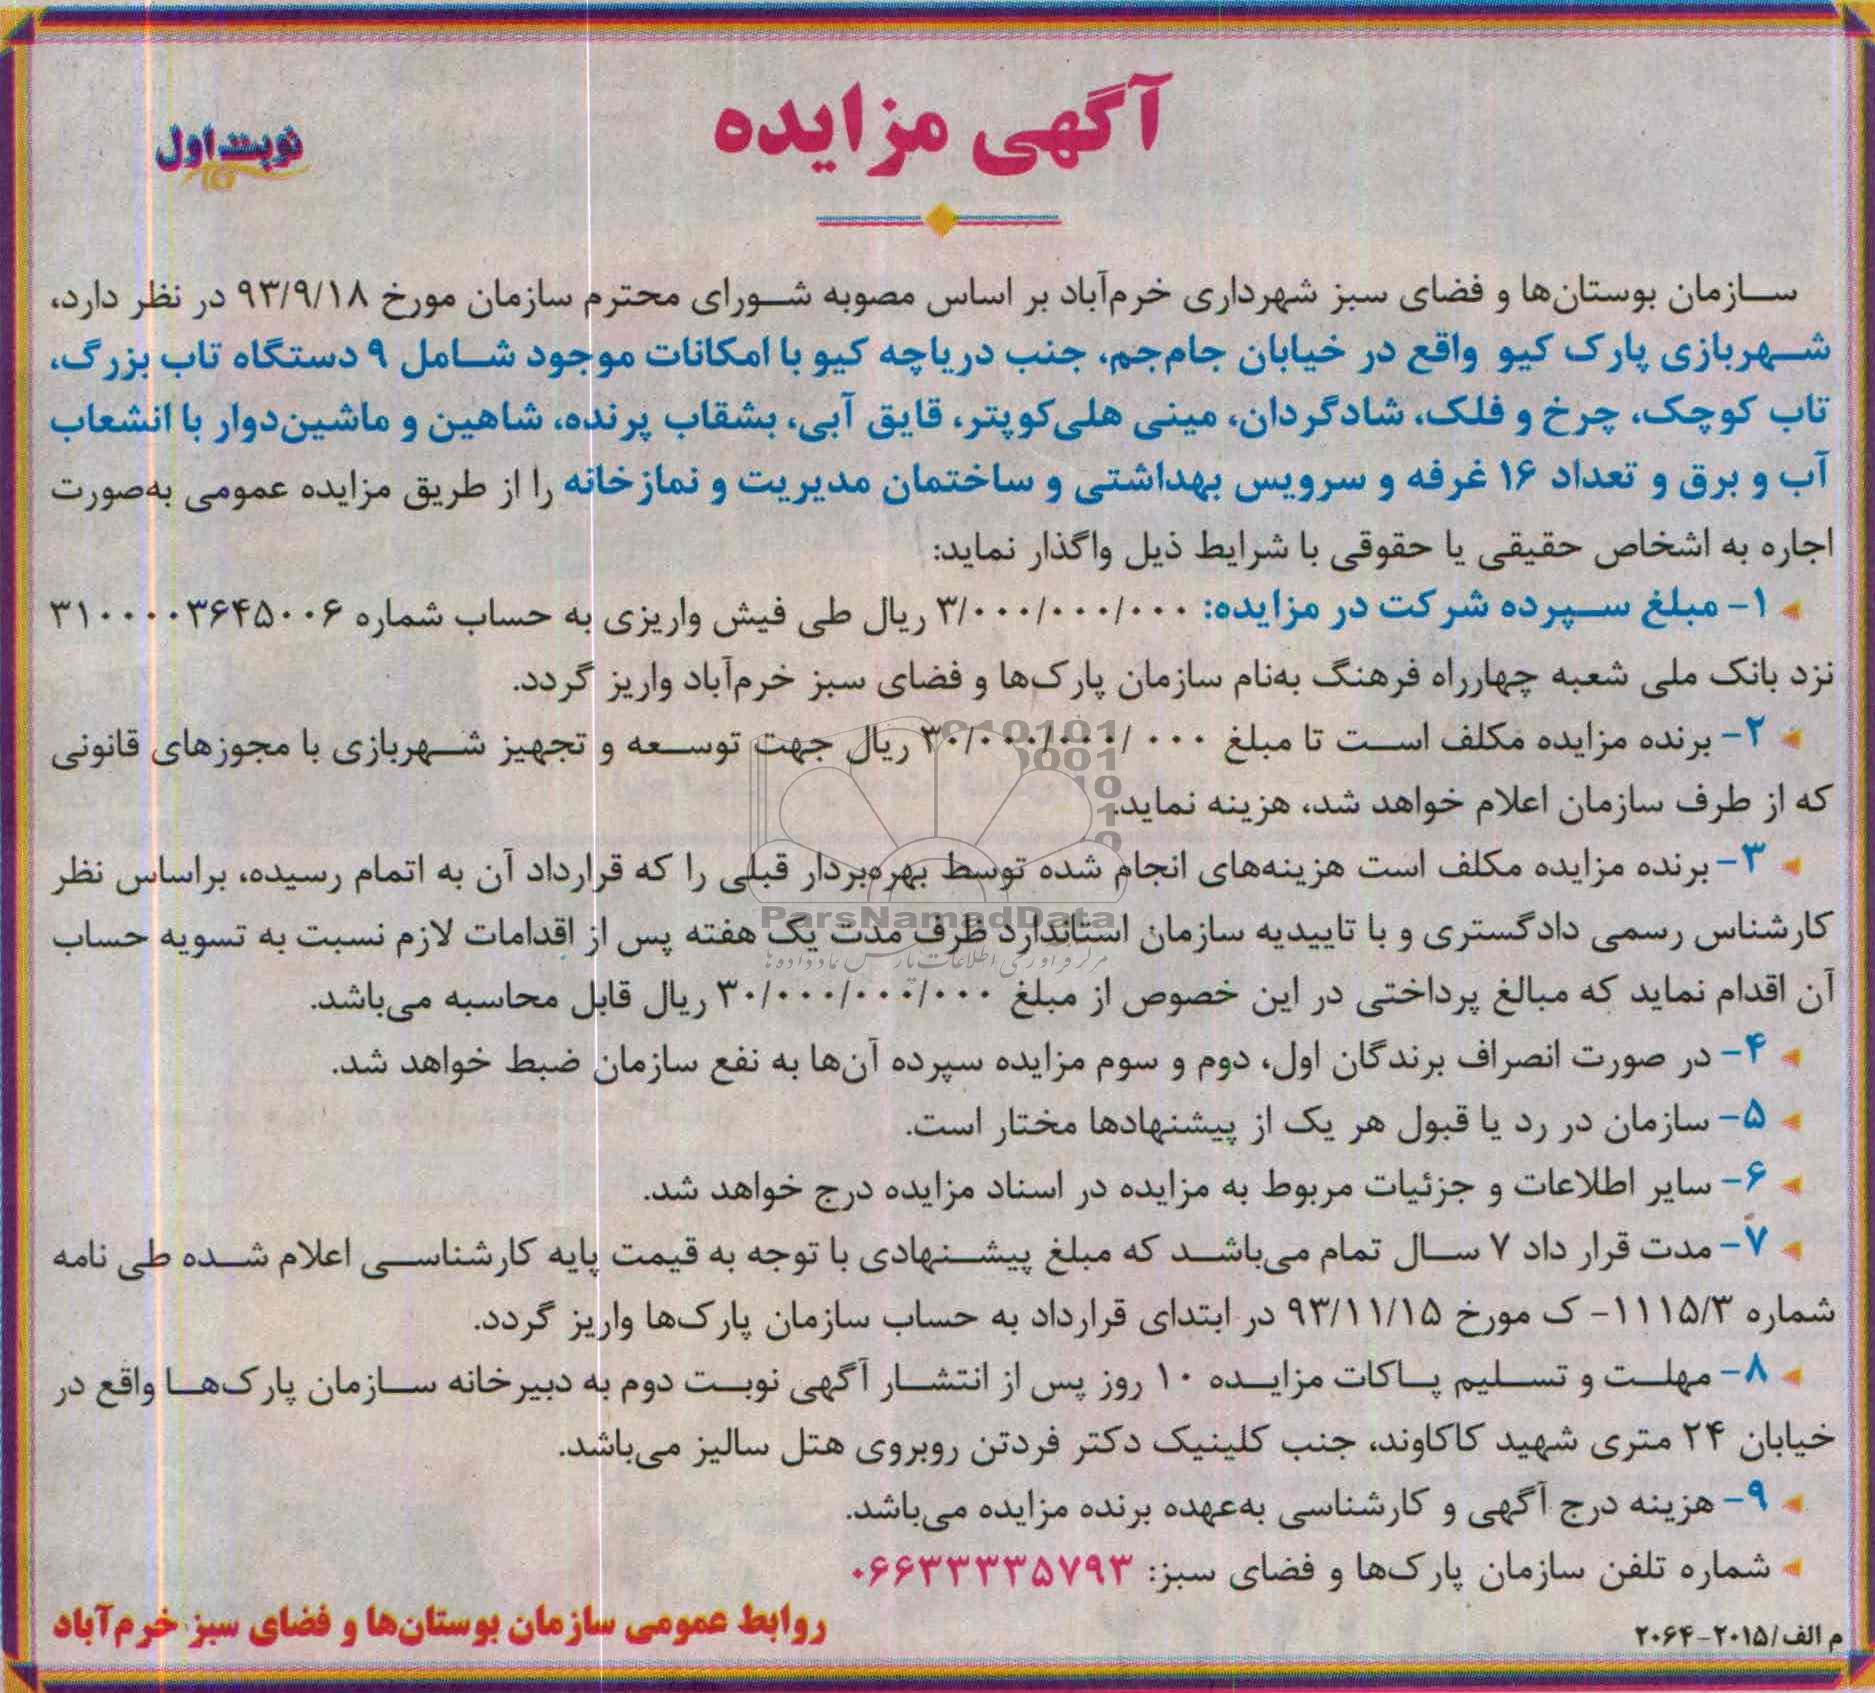 آگهی مزایده
نوبت اول
سازمان بوستان‌ها و فضای سبز شهرداری خرم‌آباد بر اساس مصوبه شورای محترم سازمان مورخ ۹۳/۹/۱۸ در نظر دارد،
شهربازی پارک کیو واقع در خیابان جام‌جم، جنب دریاچه کیو با امکانات موجود شامل ۹ دستگاه تاب بزرگ،
تاب کوچک، چرخ و فلک، شادگردان، مینی هلی‌کوپتر، قایق آبی، بشقاب پرنده، شاهین و ماشین‌دوار با انشعاب
آب و برق و تعداد ۱۶ غرفه و سرویس بهداشتی و ساختمان مدیریت و نمازخانه را از طریق مزایده عمومی به‌صورت
اجاره به اشخاص حقیقی یا حقوقی با شرایط ذیل واگذار نماید:
۱- مبلغ سپرده شرکت در مزایده: ۳/۰۰۰/۰۰۰/۰۰۰ ریال طی فیش واریزی به حساب شماره ۳۱۰۰۰۰۳۶۴۵۰۰۶
نزد بانک ملی شعبه چهارراه فرهنگ به‌نام سازمان پارک‌ها و فضای سبز خرم‌آباد واریز گردد.
۲- برنده مزایده مکلف است تا مبلغ ۳۰/۰۰۰/۰۰۰/۰۰۰ ریال جهت توسعه و تجهیز شهربازی با مجوزهای قانونی
که از طرف سازمان اعلام خواهد شد، هزینه نماید.
۳- برنده مزایده مکلف است هزینه‌های انجام شده توسط بهره‌بردار قبلی را که قرارداد آن به اتمام رسیده، براساس نظر
کارشناس رسمی دادگستری و با تاییدیه سازمان استاندارد ظرف مدت یک هفته پس از اقدامات لازم نسبت به تسویه حساب
آن اقدام نماید که مبالغ پرداختی در این خصوص از مبلغ ۳۰/۰۰۰/۰۰۰/۰۰۰ ریال قابل محاسبه می‌باشد.
۴- در صورت انصراف برندگان اول، دوم و سوم مزایده سپرده آن‌ها به نفع سازمان ضبط خواهد شد.
۵- سازمان در رد یا قبول هر یک از پیشنهادها مختار است.
۶- سایر اطلاعات و جزئیات مربوط به مزایده در اسناد مزایده درج خواهد شد.
۷- مدت قرار داد ۷ سال تمام می‌باشد که مبلغ پیشنهادی با توجه به قیمت پایه کارشناسی اعلام شده طی نامه
شماره ۱۱۱۵/۳- ک مورخ ۹۳/۱۱/۱۵ در ابتدای قرارداد به حساب سازمان پارک‌ها واریز گردد.
۸- مهلت و تسلیم پاکات مزایده ۱۰ روز پس از انتشار آگهی نوبت دوم به دبیرخانه سازمان پارک‌ها واقع در
خیابان ۲۴ متری شهید کاکاوند، جنب کلینیک دکتر فردتن روبروی هتل سالیز می‌باشد.
۹- هزینه درج آگهی و کارشناسی به‌عهده برنده مزایده می‌باشد.
شماره تلفن سازمان پارک‌ها و فضای سبز: ۰۶۶۳۳۳۳۵۷۹۳
روابط عمومی سازمان بوستان‌ها و فضای سبز خرم‌آباد
م الف/۲۰۱۵-۲۰۶۴
ParsNamadData
مرکز فرآوری اطلاعات پارس نماد داده‌ها